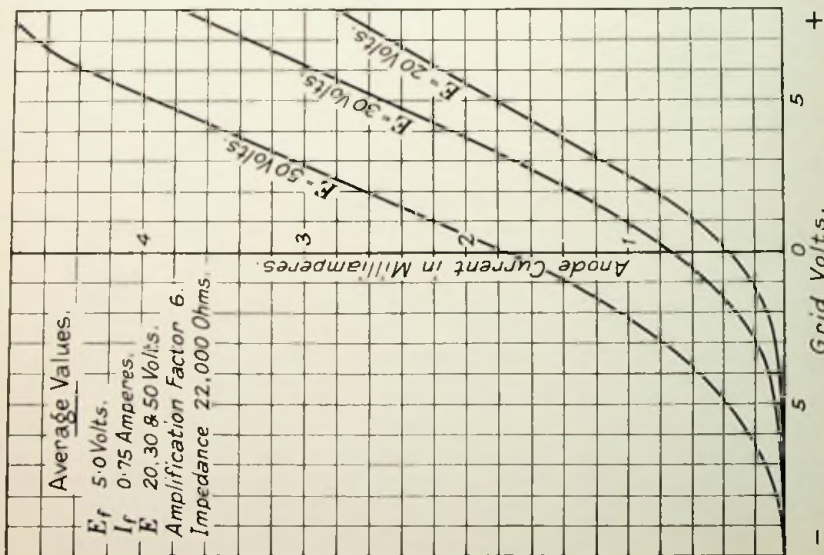 Average Values.
Ef 5·0 Volts.
If 0·75 Amperes.
E 20, 30 & 50 Volts.
Amplification Factor 6.
Impedance 22,000 Ohms.
E = 50 Volts.
E = 30 Volts.
E = 20 Volts.
4
3
2
1
Anode Current in Milliamperes.
5
0
5
-
Grid Volts.
+